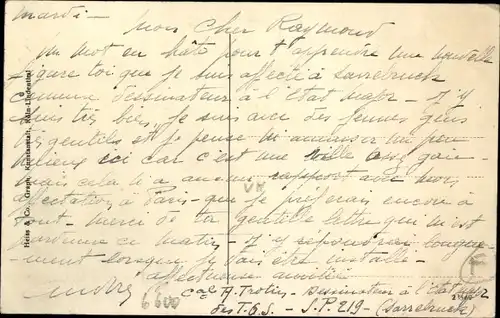 Mardi –
Mon Cher Raymond
Un mot en hâte pour t'apprendre une nouvelle
figure toi que je suis affecté à Sarrebruck
comme dessinateur à l'état major – J'y
suis très bien, je suis avec des jeunes gens
gentils et je pense m'amuser un peu
mieux ici car c'est une ville assez gaie –
mais cela n'a aucun rapport avec mon
affectation à Paris – que je préférais encore à
tout – Merci de ta gentille lettre qui m'est
parvenue ce matin – J'y répondrai longue-
ment lorsque je vais être installé –
affectueuse amitié
André
Cal A. Trotin – Dessinateur à l'état major
des T.O.S. – S.P. 219 – (Sarrebruck)
6600
VK
F
Heiss & Co., Graph. Kunstanstalt, Köln-Lindenthal